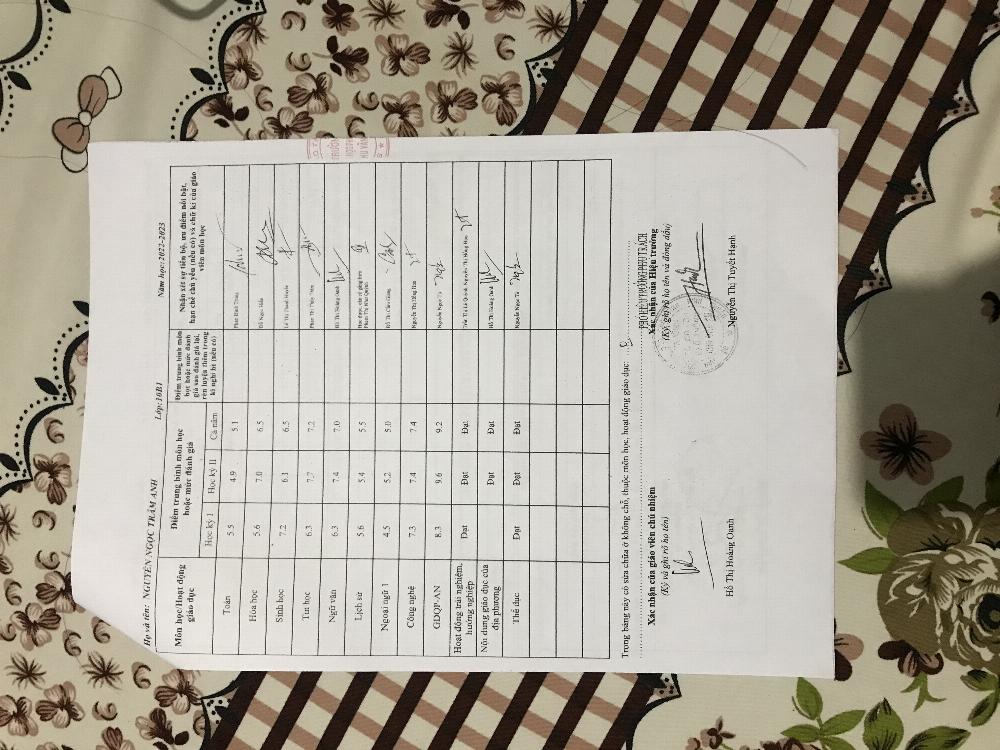 Họ và tên: NGUYỄN NGỌC TRÂM ANH Lớp:10B1 Năm học:2022-2023
Môn học/Hoạt động giáo dục
Điểm trung bình môn học hoặc mức đánh giá
Điểm trung bình môn học hoặc mức đánh giá sau đánh giá lại, rèn luyện thêm trong kì nghỉ hè (nếu có)
Nhận xét sự tiến bộ, ưu điểm nổi bật, hạn chế chủ yếu (nếu có) và chữ kí của giáo viên môn học
Học kỳ I Học kỳ II Cả năm
Toán 5.5 4.9 5.1
Hóa học 5.6 7.0 6.5
Sinh học 7.2 6.1 6.5 Lê Thị Thanh Huyền
Tin học 6.3 7.7 7.2
Ngữ văn 6.3 7.4 7.0 Hồ Thị Hoàng Oanh
Lịch sử 5.6 5.4 5.5
Ngoại ngữ 1 4.5 5.2 5.0
Công nghệ 7.3 7.4 7.4 Nguyễn Thị Hồng Hoa
GDQP-AN 8.3 9.6 9.2 Nguyễn Ngọc Tú
Hoạt động trải nghiệm, hướng nghiệp Đạt Đạt Đạt
Nội dung giáo dục của địa phương Đạt Đạt Hồ Thị Hoàng Oanh
Thể dục Đạt Đạt Đạt Nguyễn Ngọc Tú
Trong bảng này có sửa chữa ở không chỗ, thuộc môn học, hoạt động giáo dục:
Xác nhận của giáo viên chủ nhiệm
(Ký và ghi rõ họ tên)
Hồ Thị Hoàng Oanh
PHÓ HIỆU TRƯỞNG PHỤ TRÁCH
Xác nhận của Hiệu trưởng
(Ký, ghi rõ họ tên và đóng dấu)
Nguyễn Thị Tuyết Hạnh